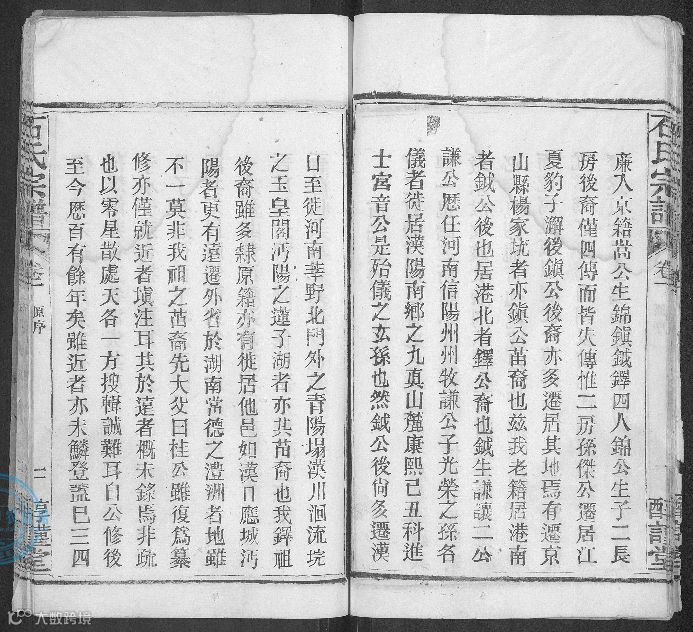 石氏宗譜
卷一
廉入京籍嵩公生錦鎮鉞鐸四人錦公生子二長
房後裔僅四傳而皆失傳惟二房孫傑公遷居江
夏豹子澥後鎮公後裔亦多遷居其地焉有遷京
山縣楊家坑者亦鎮公苗裔也茲我老籍居港南
者鉞公後也居港北者鐸公裔也鉞生謙讓二公
謙公歷任河南信陽州州牧謙公子光榮之孫名
儀者徙居漢陽南鄉之九真山麓康熙己丑科進
士宮音公是殆儀之玄孫也然鉞公後尚多遷漢
口至徙河南華野北門外之青陽塌漢川洄流垸
之玉皇閣沔陽之蓮子湖者亦其苗裔也我鐸祖
後裔雖多隸原籍亦有徙居他邑如漢口應城沔
陽者更有遠遷外省於湖南常德之澧洲者地雖
不一莫非我祖之苗裔先大父曰桂公雖復為纂
修亦僅就近者填注耳其於遠者概未錄焉非疏
也以零星散處天各一方搜輯誠難耳自公修後
至今歷百有餘年矣雖近者亦未鱗登譜已三四
石氏宗譜
卷一
原序
二
醇謹堂
大數跨境